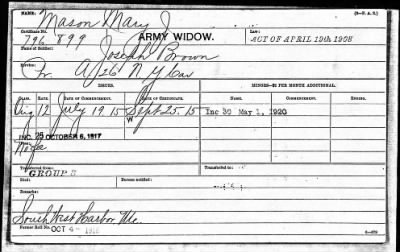 (3-1 P. A. S.)
NAME: Mason Mary J
Certificate No. 796899 ARMY WIDOW. LAW: ACT OF APRIL 19th 1908
Name of Soldier: Joseph Brown
Service: Pr. A, 26" N Y Cav
ISSUES. MINORS—$2 PER MONTH ADDITIONAL.
CLASS. RATE. DATE OF COMMENCEMENT. DATE OF CERTIFICATE. NAME. DATE OF COMMENCEMENT.
Aug 12 July 19. 15 Sept 25. 15 Inc 30 May 1, 1920
W
INC. 25 OCTOBER 6, 1917
Transferred from: Transferred to:
GROUP 3
Died: Bureau notified:
Remarks:
South West Harbor, Me.
Former Roll No. OCT 4-